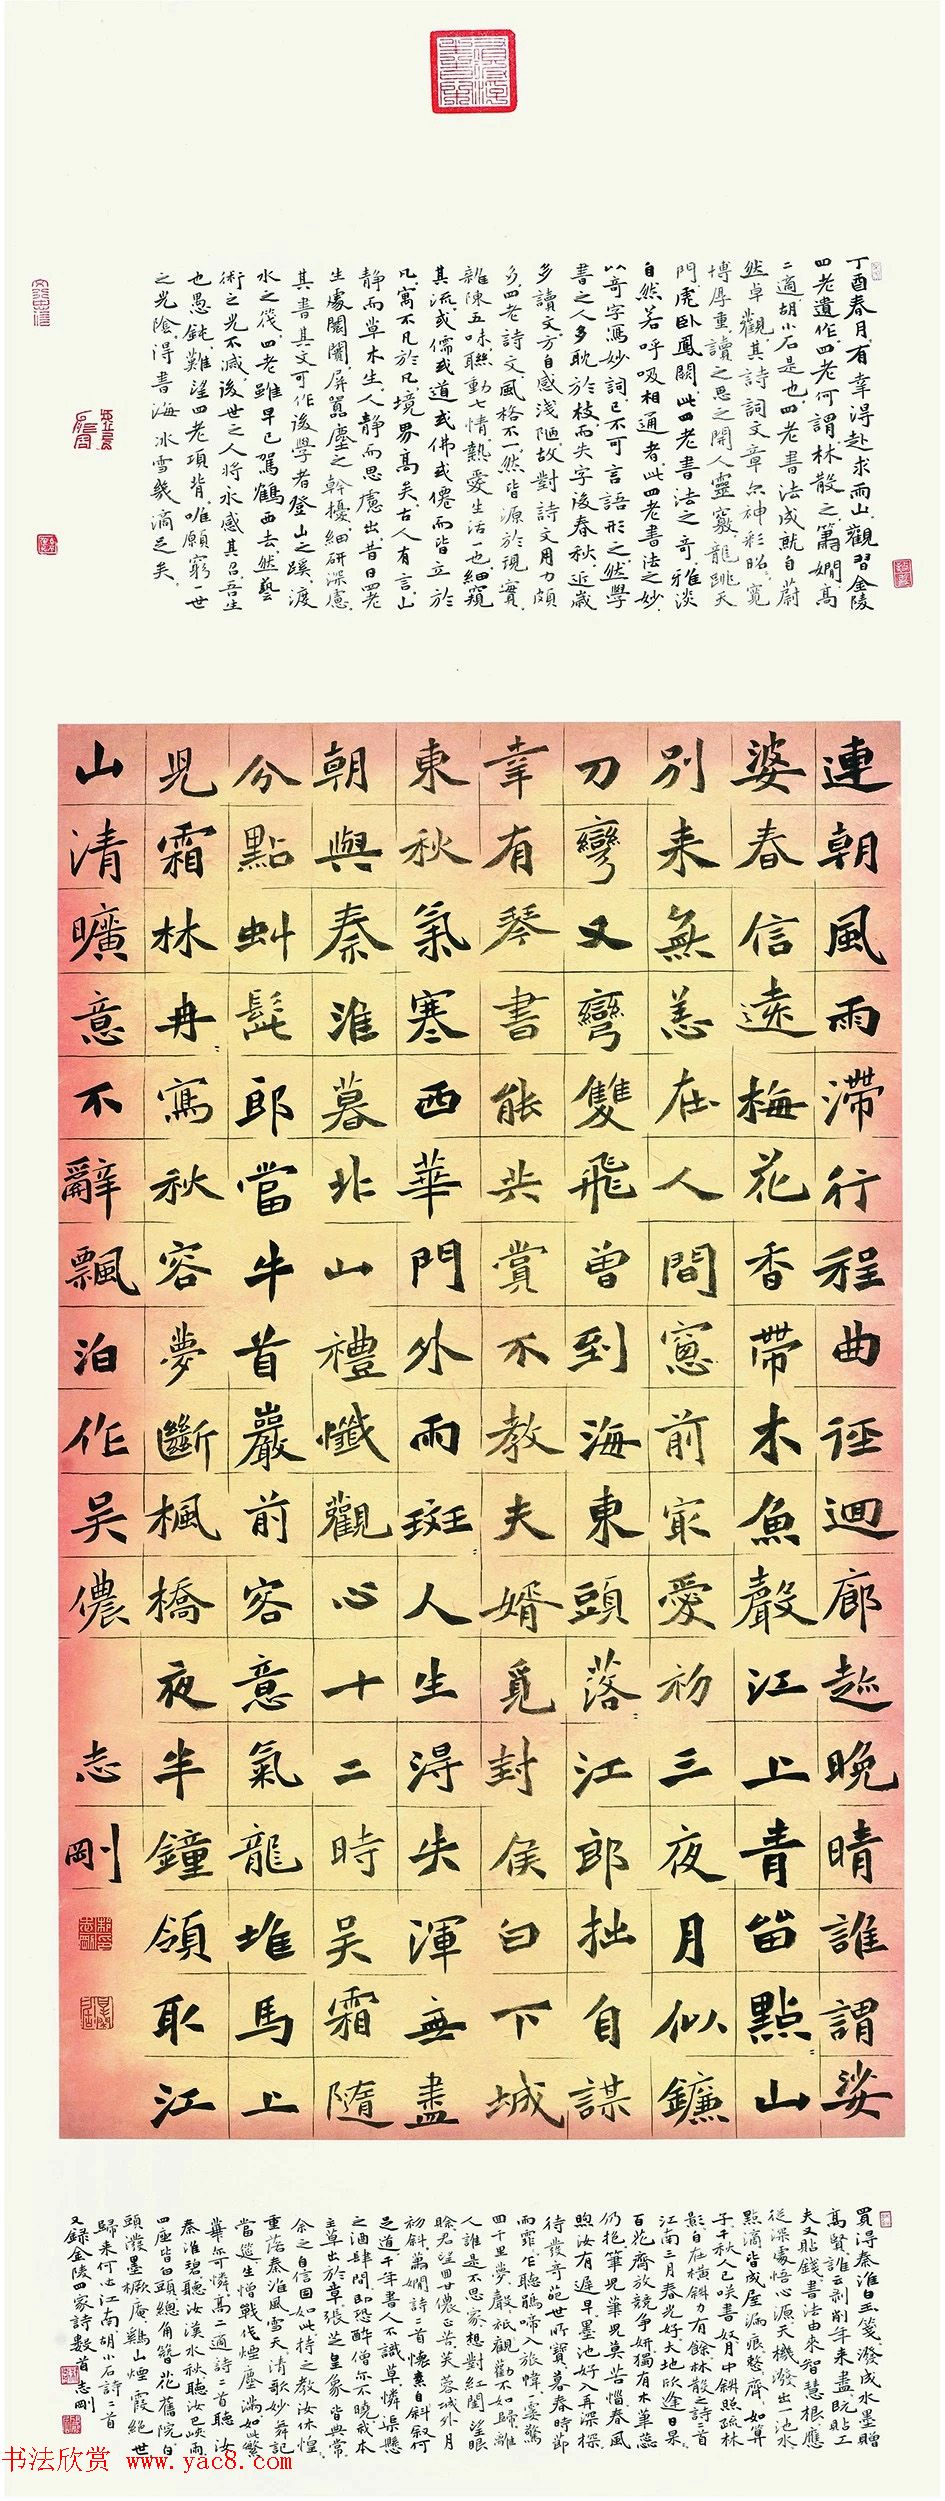 丁酉春月有幸得赴求雨山觀習金陵
四老遺作四老何謂林散之蕭嫻高
二適胡小石是也四老書法成就自蔚
然卓觀其詩詞文章亦神彩昭寬
博厚重讀之思之開人靈竅龍跳天
門虎臥鳳闕此四老書法之奇雅淡
自然若呼吸相通者此四老書法之妙
以奇字馮妙詞已不可言語形之然學
書之人多耽於枝而失字後春秋近歲
多讀文方自感淺陋故對詩文用力頗
多四老詩文風格不一然皆源於現實
雜陳五味聯動七情熱愛生活一也細窺
其流或儒或道或佛或僊而皆立於
凡寓不凡於凡境界高矣古人有言山
靜而草木生人靜而思慮出昔日四老
生處闤闠屏囂塵之幹擾細研深慮
其書其文可作後學者登山之蹊渡
水之筏四老雖早已駕鶴西去然藝
術之光不滅後世之人將永感其召吾生
也愚鈍難望四老項背唯願窮一世
之光陰得書海冰雪幾滴足矣
連朝風雨滯行程曲徑迴廊趂晚晴誰謂娑
婆春信遠梅花香帶木魚聲江上青峀點山
別来無恙在人間窻前寂愛初三夜月似鐮
刀彎又彎雙飛曾到海東頭落江郎拙自謀
幸有琴書能共賞不教夫婿覓封侯白下城
東秋氣寒西華門外雨斑人生淂失渾無盡
朝與秦淮暮北山禮懺觀心十二時吴霜隨
分點虯髭郎當牛首巖前容意氣龍堆馬上
見霜林冉寫秋容夢斷楓橋夜半鐘領取江
山清曠意不辭飄泊作吴儂 志剛
買得秦淮白玉箋潑成水墨贈
高賢誰云剥削年来盡既貼工
夫又貼錢書法由来智慧根應
從深處悟心源天機潑出一池水
點滴皆成屋漏痕整齊如算
子千秋人已咲書奴月中斜照疏林
影自在橫斜力有餘林散之詩二首
江南三月春光好大地欣逢日杲
百花齊放競爭妍獨有木筆蕊
仍抱筆兒筆兒莫苦惱春風
煦汝有遲早墨池好入再深探
待發奇葩世所寳暮春時節
雨霏乍聽鵑啼入旅幃一霎驚
四千里夢聲祇觀勸不如歸離
人誰是不思家想對紅閨望眼
賖君望四廿儂亡苦芙蓉城外月
初斜蕭嫻詩二首懷素自敘何
足道千年書人不識草憐渠懸
之酒肆間即恐醉僧亦不曉我本
主草出於章張芝皇象皆典常
余之自信固如此持之教汝休惶
重蕩秦淮風雪天清歌妙舞記
當筵生憎戰伐煙塵滿如此繁
華亦可憐高二適詩二首聽汝
秦淮碧聽汝溪水秋聽汝已峽雨
四座皆白頭總角簪花舊院白
頭潑墨橛庵雞山煙霞絕世
歸来何必江南胡小石詩二首
又錄金陵四家詩數首志剛
书法欣赏 www.yac8.com